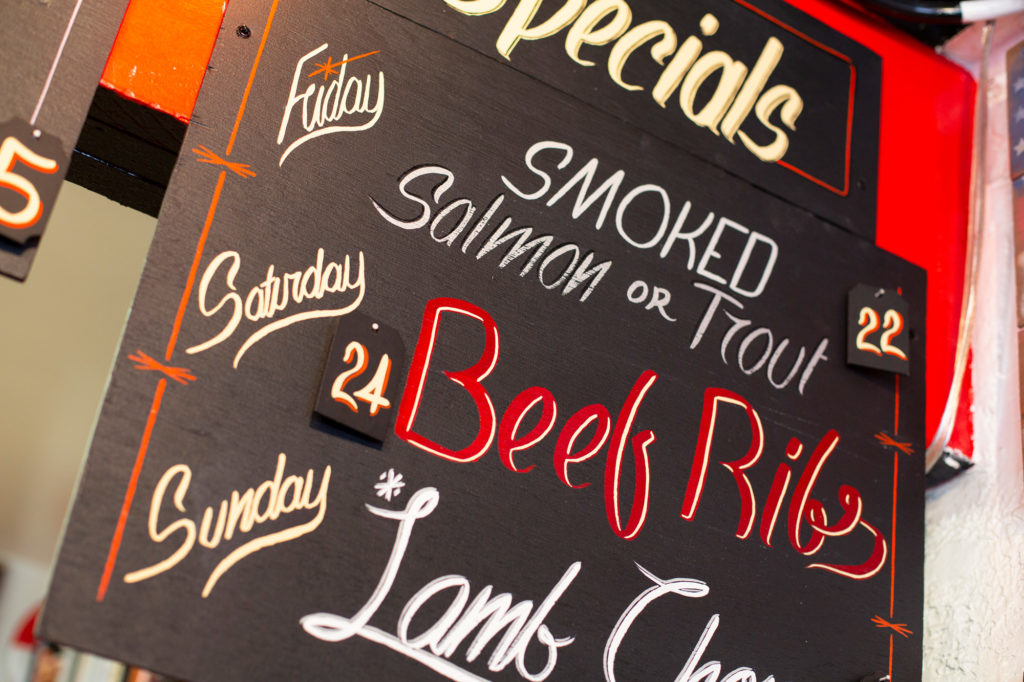 Specials
5
Friday
SMOKED
Salmon or Trout
22
Saturday
24
Beef Ribs
Sunday
*Lamb